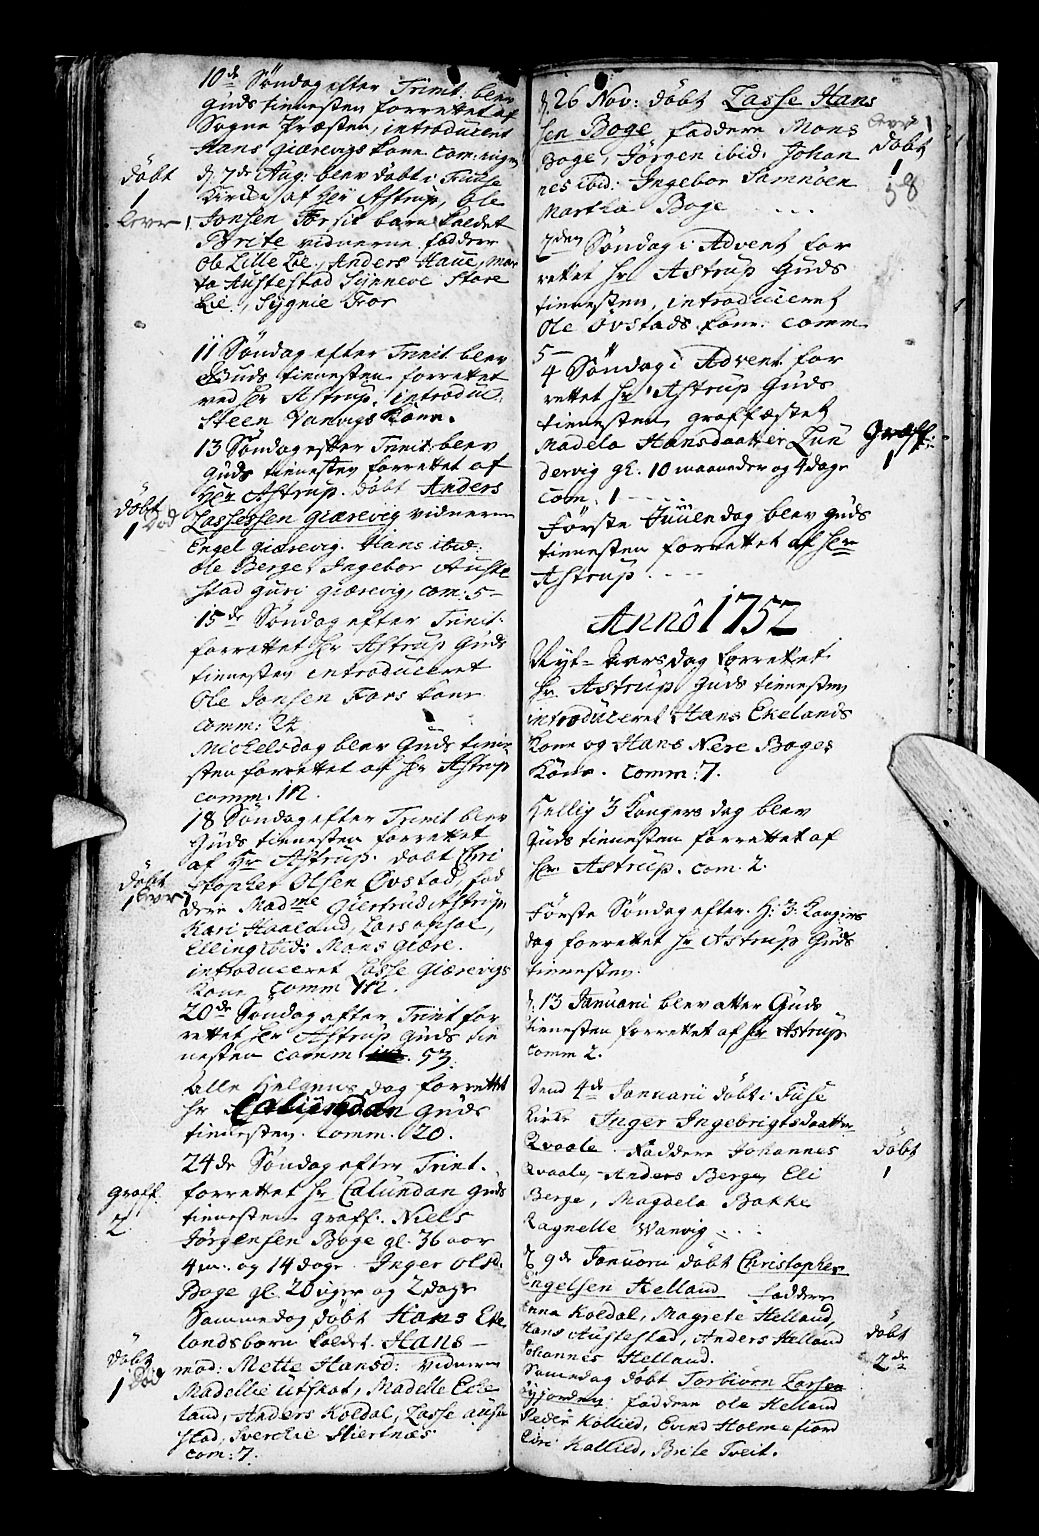 10de Søndag efter Trinit: blev
Guds tienesten forrettet af
Sogne Præsten, introduceret
Hans Giærevigs kone com: ingen
d 7de Aug: blev døbt i Fuuse
Kirke af Hr Astrup, Ole
Jonsen barn kaldet
Brite vidnerne faddere
Ole Lille Lie, Anders Haue, Mar
ta Austestad Sünneve Store
Lie, Sygnie
døbt
1
Lever 1
11 Søndag efter Trinit blev
Guds tienesten forrettet
ved Hr Astrup. introduc:
Steen Vanvigs Kone.
13 Søndag efter Trinit: blev
Guds tienesten forrettet af
Hr Astrup. døbt Anders
Lassessen Giærevig vidnerne
Engel giærevig. Hans ibid:
Ole Berge, Ingebor Auste
stad Guri Giærevig, com: 5-
døbt
1 Død
15de Søndag efter Trinit.
forrettet Hr Astrup Guds
tienesten introduceret
Ole Jonsen Fors kone
comm: 24
Michelsdag blev Guds tiene
sten forrettet af Hr Astrup
comm. in.
18 Søndag efter Trinit blev
Guds tienesten forrettet
af Hr Astrup. døbt Chri
stopher Olsen Øvstad, fad
dere Madme Giertrud Astrup
Kari Haaland, Lars opsal,
Elling ibid: Mons Giære.
introduceret Lasse Giærevigs
Kone comm in.
døbt
1 Lever 1
20de Søndag efter Trinit for
rettet Hr Astrup Guds tie
nesten comm 53.
Alle Helgens dag forrettet
Hr Calundan Guds
tienesten. comm. 20.
24de Søndag efter Trint.
forrettet Hr Calundan Guds
tienesten graff: Niels
Jørgensen Boge gl. 36 aar
4 m. og 14 dage. Inger Olsd.
Boge gl. 20 uger og 2 dage
Graff.
2
Sammedag døbt Hans Eke
landsbarn kaldet Hans
mod: Mette Hansd: vidnerne
Madellie Utskot, Madelle Eche
land, Anders Koldal, Lasse auste
stad, Sverchie Hiertnæs
com: 7.
døbt
1 Død
d. 26 Nov: døbt Lasse Hans
sen Boge faddere Mons
Boge, Jørgen ibid. Johan
nes ibid: Ingebor Samnøen
Martha Boge
Lever 1
døbt
1
58
2den Søndag i Advent for
rettet Hr Astrup Guds
tienesten, introduceret
Ole Øvstads kone. comm
5-
4 Søndag i Advent for
rettet Hr Astrup Guds
tienesten graffæstet
Madela Hansdaatter Lun
dervig gl. 10 maaneder og 4 dage
com: 1
Graff:
1
Første Juuledag blev Guds
tienesten forrettet af Hr
Astrup.
Anno 1752
Nyt-Aarsdag forrettet
Hr Astrup Guds tienesten
introduceret Hans Ekelands
kone og Hans Nere Boges
Kone. comm: 7.
Hellig 3 Kongers dag blev
Guds tienesten forrettet af
Hr Astrup. com. 2.
Første Søndag efter H: 3 Kongers
dag forrettet Hr Astrup Guds
tienesten.
d. 13 Januarii blev atter Guds
tienesten forrettet af Hr Astrup
comm 2.
Dend 4de Januarii døbt i Fuse
Kirke Inger Ingebrigtsdaatter
Qvaale Faddere Johannes
Qvaale, Anders Berge, Eli
Berge, Magdela Bakke
Ragnelle Wanvig
døbt
1
d 9de Januarii døbt Christopher
Engelsen Helland faddere
Anna Koldal, Magrete Helland,
Hans Austestad, Anders Helland
Johannes Helland.
Samedag døbt Torbiørn Larsen
faddere Ole Helland
Peder Kollied, Evind Holmefiord
Guri Kollied, Brite Tveit.
døbt
2de